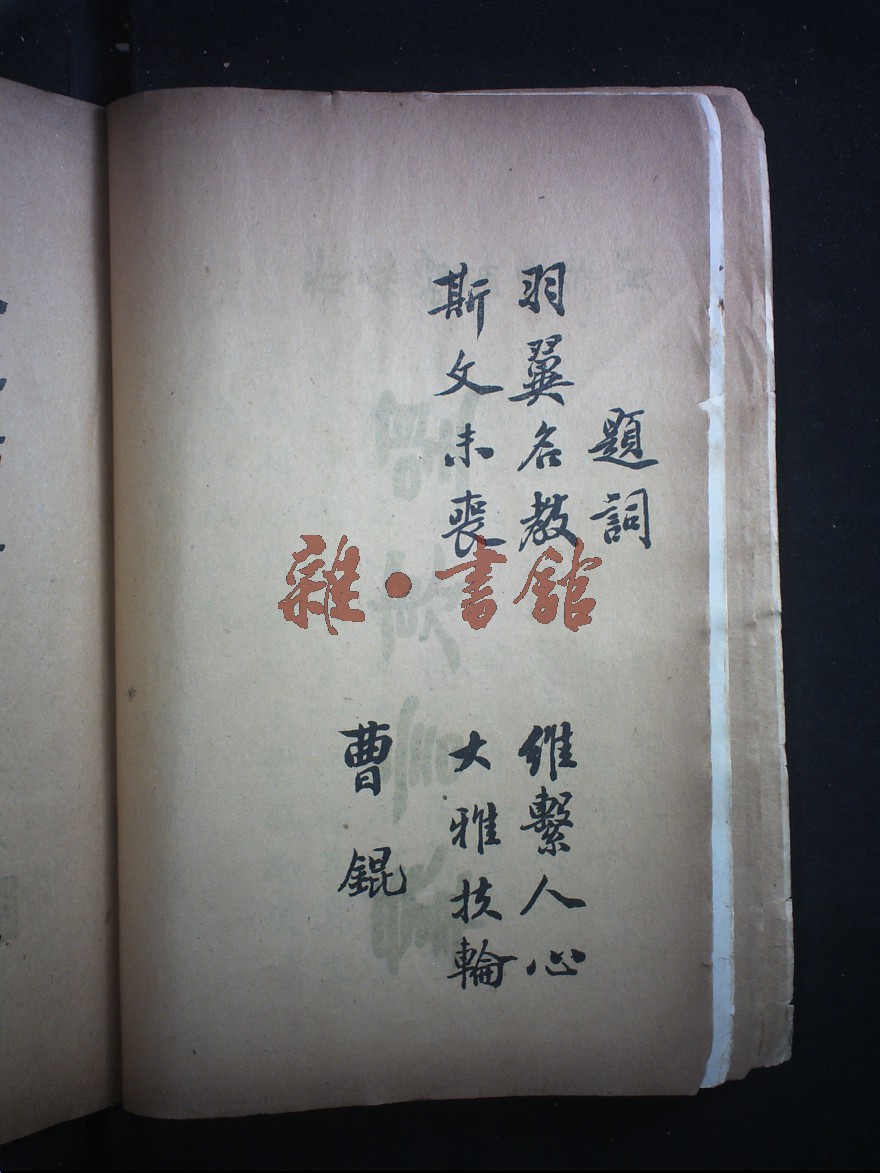 題詞
羽翼名教 維繫人心
斯文未喪 大雅扶輪
曹錕
雜·書館